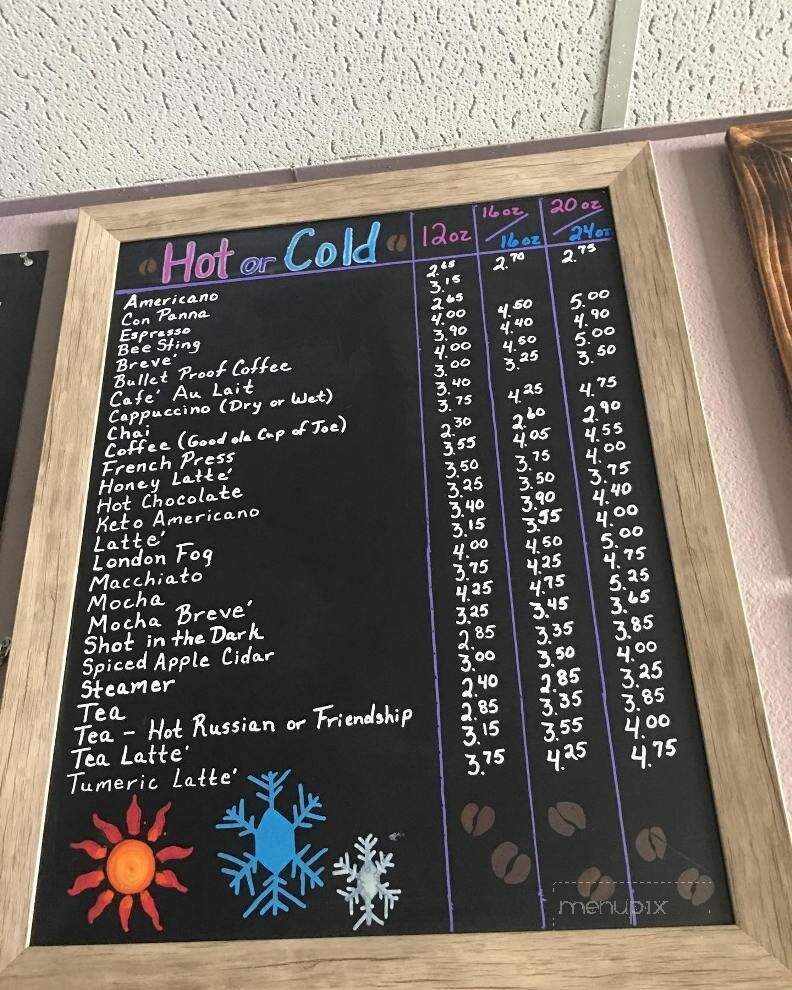 Hot or Cold
Americano
Con Panna
Espresso
Bee Sting
Breve'
Bullet Proof Coffee
Cafe' Au Lait
Cappuccino (Dry or Wet)
Chai
Coffee (Good ole Cup of Joe)
French Press
Honey Latte'
Hot Chocolate
Keto Americano
Latte'
London Fog
Macchiato
Mocha
Mocha Breve'
Shot in the Dark
Spiced Apple Cidar
Steamer
Tea
Tea - Hot Russian or Friendship
Tea Latte'
Tumeric Latte'
12oz
2.65
3.15
2.65
4.00
3.90
4.00
3.00
3.40
3.75
2.30
3.55
3.50
3.25
3.40
3.15
4.00
3.75
4.25
3.25
2.85
3.00
2.40
2.85
3.15
3.75
16oz
16oz
2.70
4.50
4.40
4.50
3.25
4.25
2.60
4.05
3.75
3.50
3.90
3.55
4.50
4.25
4.75
3.45
3.35
3.50
2.85
3.35
3.55
4.25
20oz
24oz
2.75
5.00
4.90
5.00
3.50
4.75
2.90
4.55
4.00
3.75
4.40
4.00
5.00
4.75
5.25
3.65
3.85
4.00
3.25
3.85
4.00
4.75
menupix